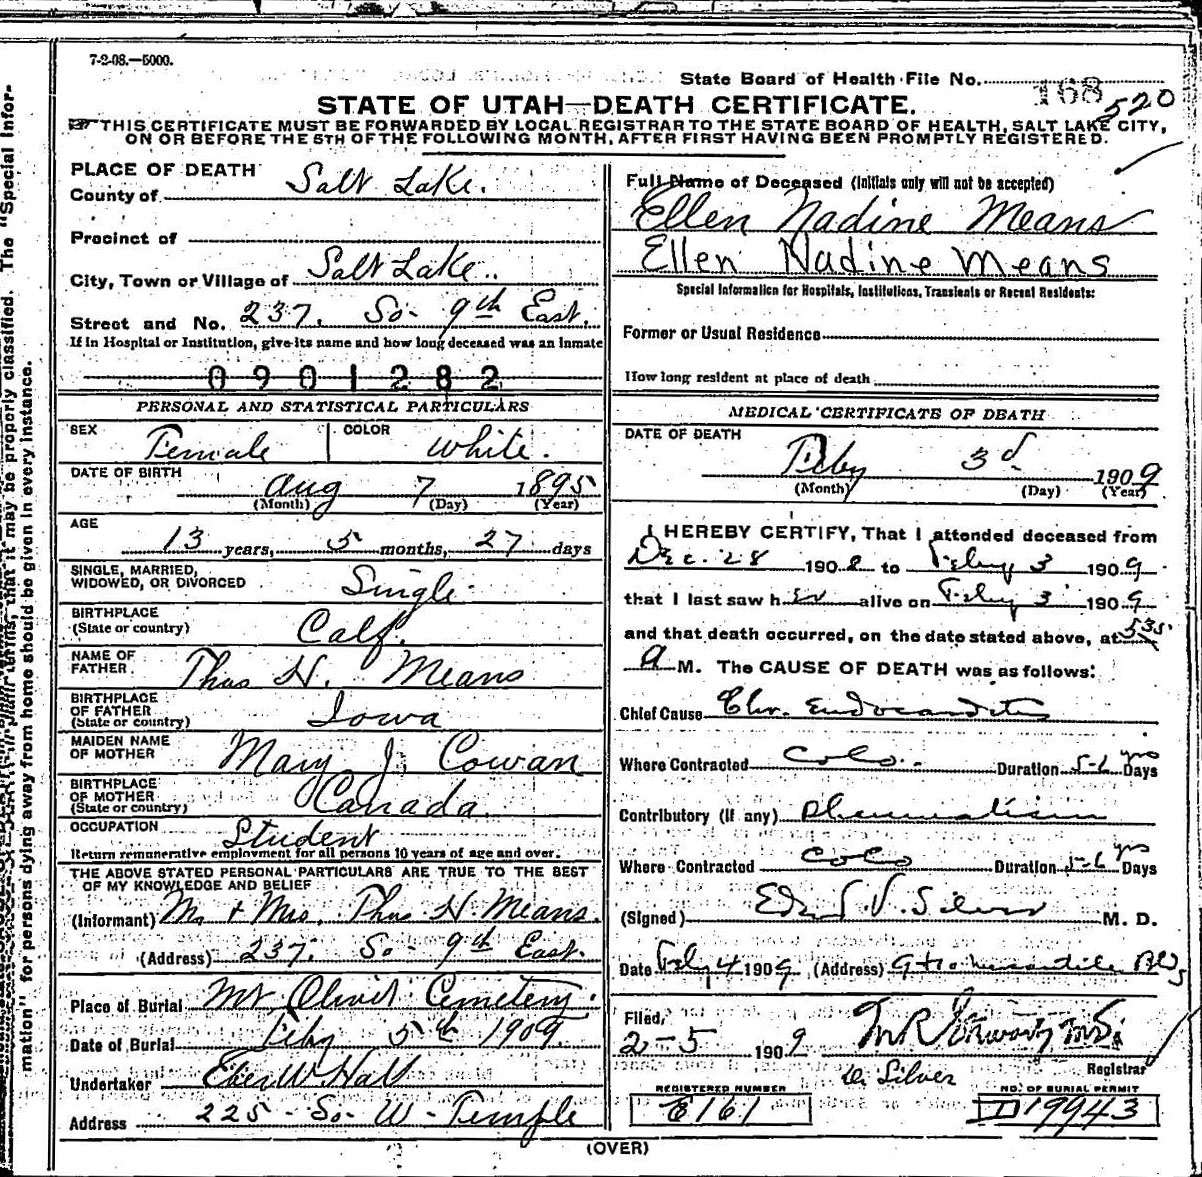 7-2-08.—5000.
State Board of Health File No. 168
520
STATE OF UTAH—DEATH CERTIFICATE.
THIS CERTIFICATE MUST BE FORWARDED BY LOCAL REGISTRAR TO THE STATE BOARD OF HEALTH, SALT LAKE CITY,
ON OR BEFORE THE 5TH OF THE FOLLOWING MONTH, AFTER FIRST HAVING BEEN PROMPTLY REGISTERED.
PLACE OF DEATH
County of Salt Lake.
Precinct of
City, Town or Village of Salt Lake.
Street and No. 237. So- 9th East.
If in Hospital or Institution, give its name and how long deceased was an Inmate
0901282
PERSONAL AND STATISTICAL PARTICULARS
SEX Female COLOR White.
DATE OF BIRTH Aug 7 1895
(Month) (Day) (Year)
AGE
13 years, 5 months, 27 days
SINGLE, MARRIED,
WIDOWED, OR DIVORCED Single
BIRTHPLACE
(State or country) Calf.
NAME OF
FATHER Thos H. Means
BIRTHPLACE
OF FATHER
(State or country) Iowa
MAIDEN NAME
OF MOTHER Mary J. Cowan
BIRTHPLACE
OF MOTHER
(State or country) Canada
OCCUPATION Student
Return remunerative employment for all persons 10 years of age and over.
THE ABOVE STATED PERSONAL PARTICULARS ARE TRUE TO THE BEST
OF MY KNOWLEDGE AND BELIEF
(Informant) Mr + Mrs. Thos H. Means.
(Address) 237. So- 9th East.
Place of Burial Mt Olivet Cemetery.
Date of Burial Feby 5th 1909.
Undertaker Eber W. Hall
Address 225 - So- W- Temple
Full Name of Deceased (Initials only will not be accepted)
Ellen Nadine Means
Ellen Nadine Means
Special Information for Hospitals, Institutions, Transients or Recent Residents:
Former or Usual Residence
How long resident at place of death
MEDICAL CERTIFICATE OF DEATH
DATE OF DEATH
Feby 3d 1909
(Month) (Day) (Year)
I HEREBY CERTIFY, That I attended deceased from
Dec. 28 1908 to Feby 3 1909
that I last saw her alive on Feby 3 1909
and that death occurred, on the date stated above, at 535
a M. The CAUSE OF DEATH was as follows:
Chief Cause Chr. Endocarditis
Where Contracted Colo. Duration 5-6 yrs Days
Contributory (if any) Rheumatism
Where Contracted Colo Duration 5-6 yrs Days
(Signed) Silver M. D.
Date Feby 4 1909 (Address) Mercantile Bldg
Filed,
2-5 1909
Registrar
Silver
REGISTERED NUMBER
E161
NO. OF BURIAL PERMIT
D19943
(OVER)
The "Special Infor-
mation" for persons dying away from home should be given in every instance.
it may be properly classified.